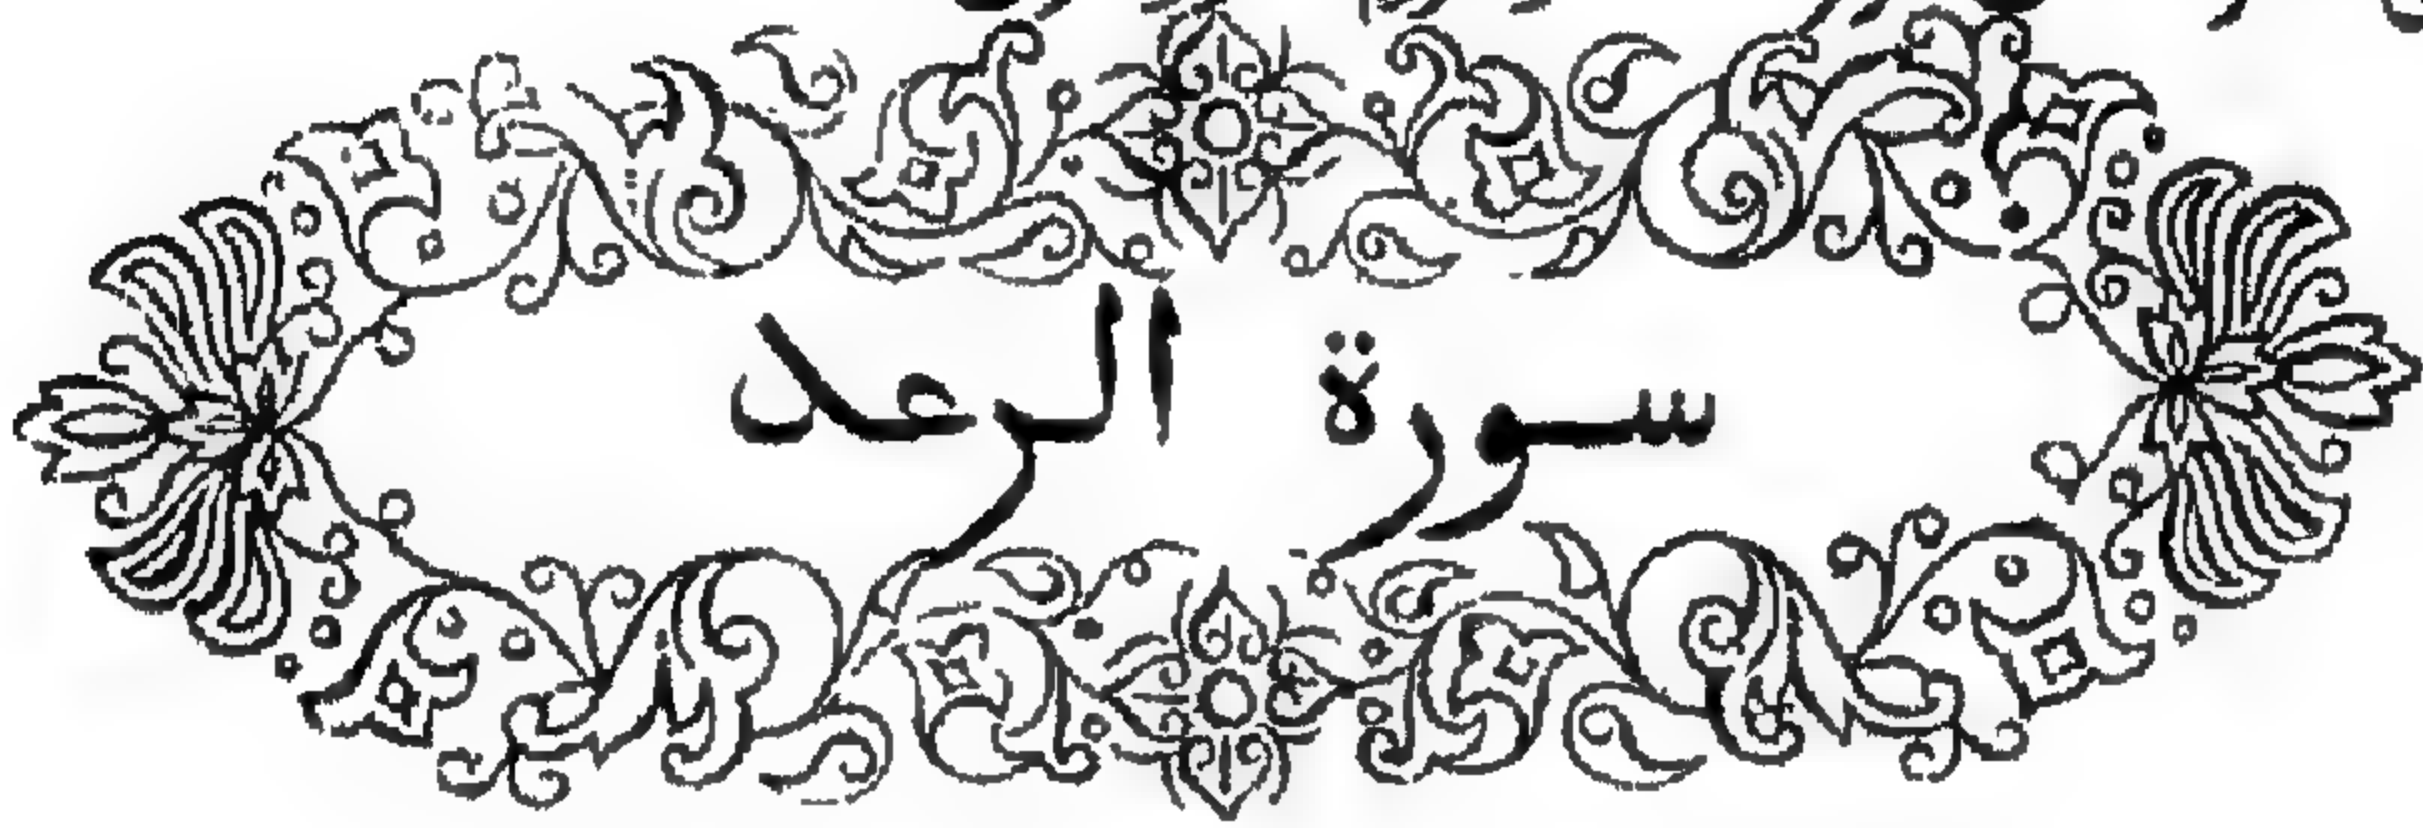 سورة الرعد